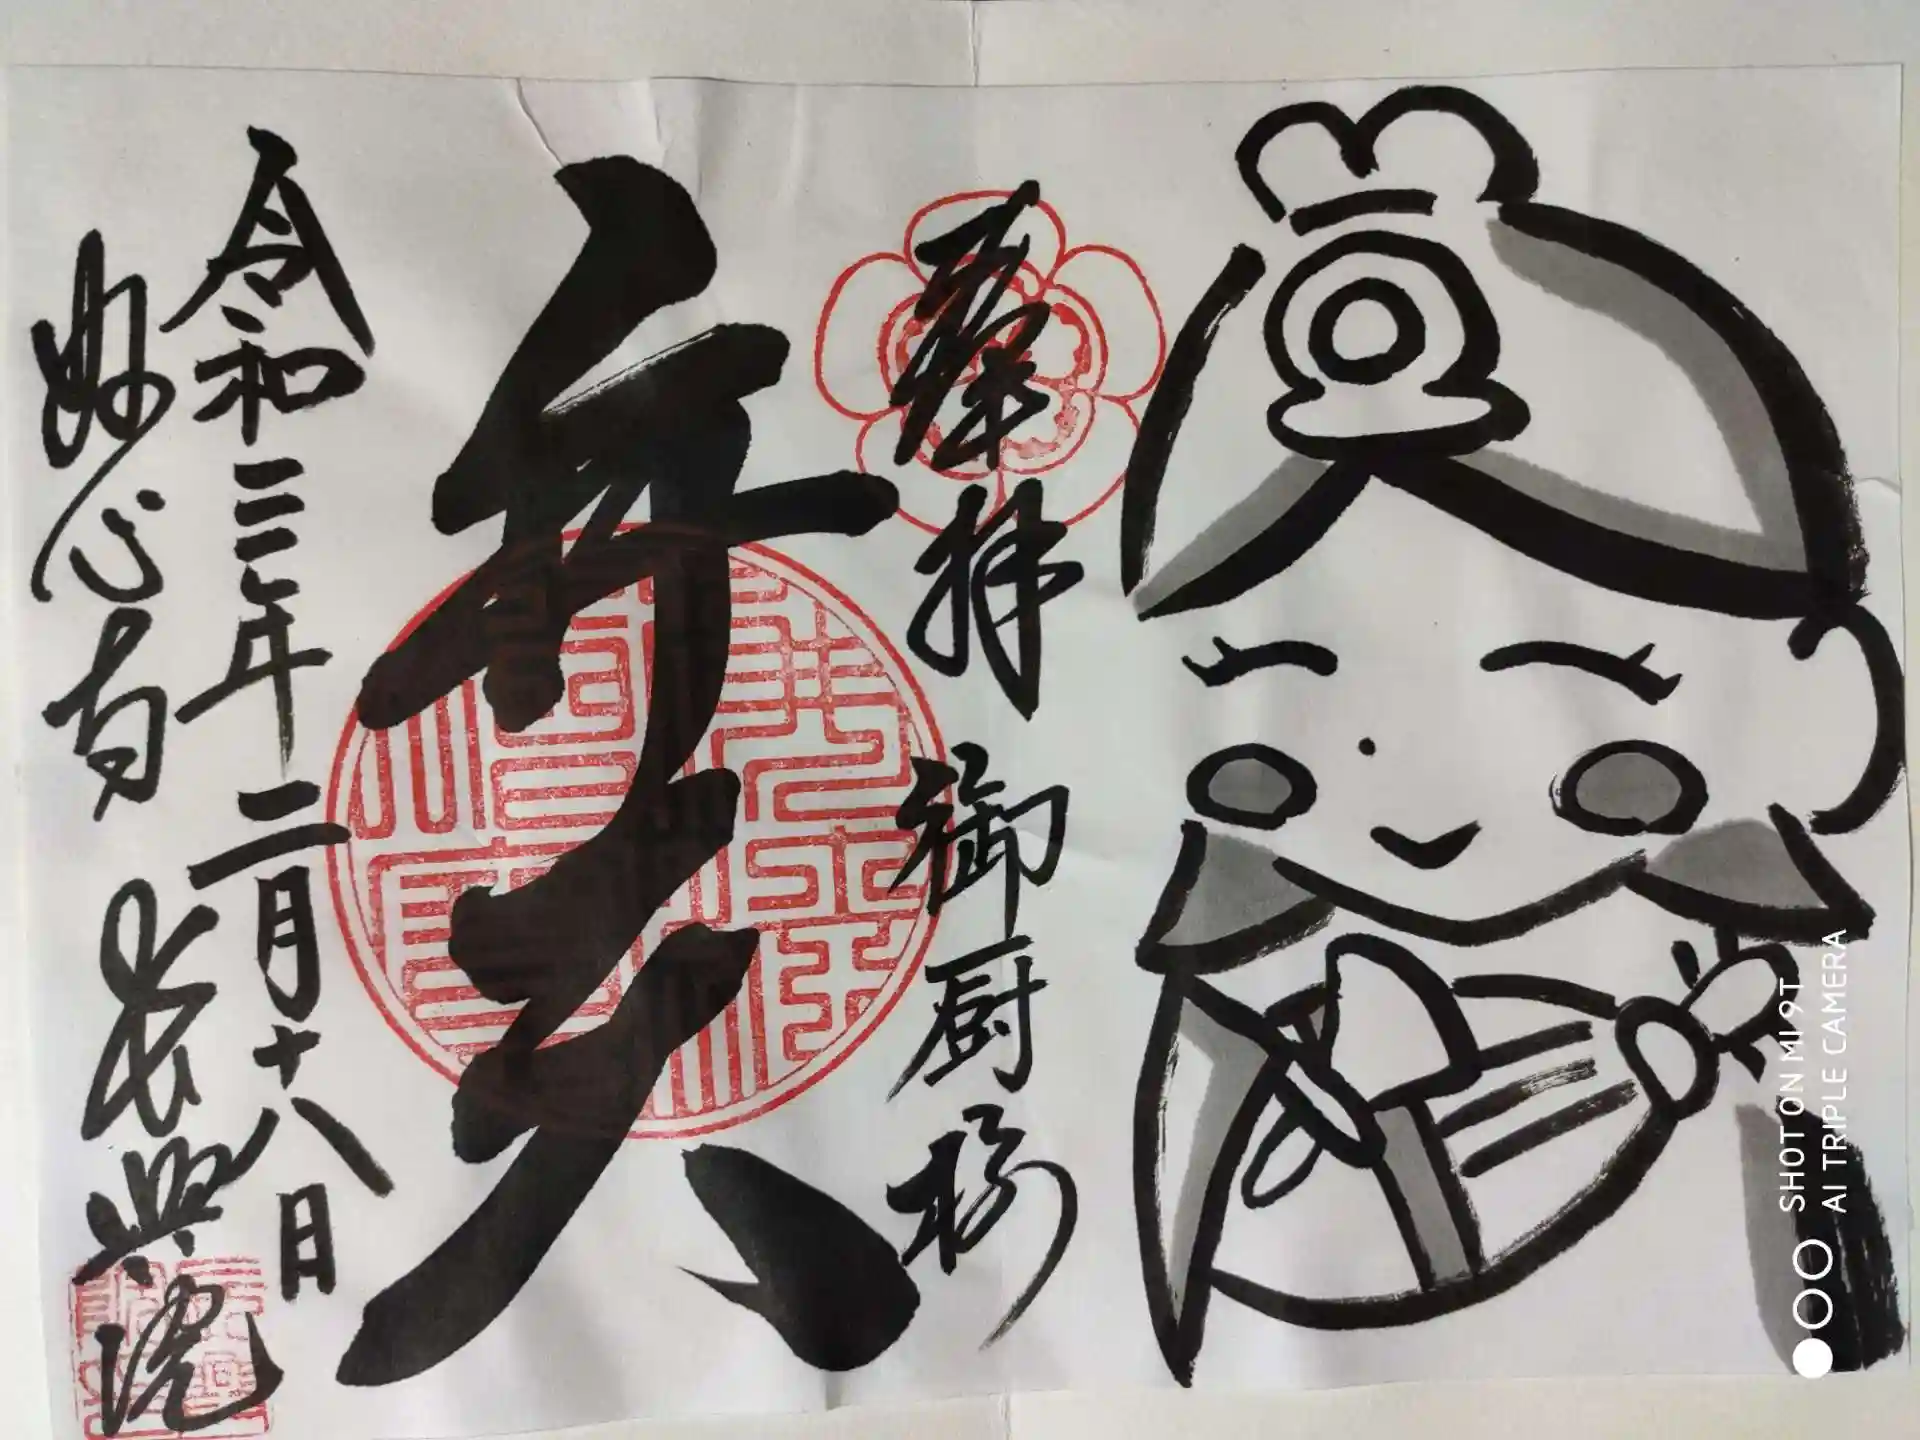 奉拝 御厨
弁天
令和三年二月十八日
妙心寺 長興院
SHOT ON MI 9T
AI TRIPLE CAMERA